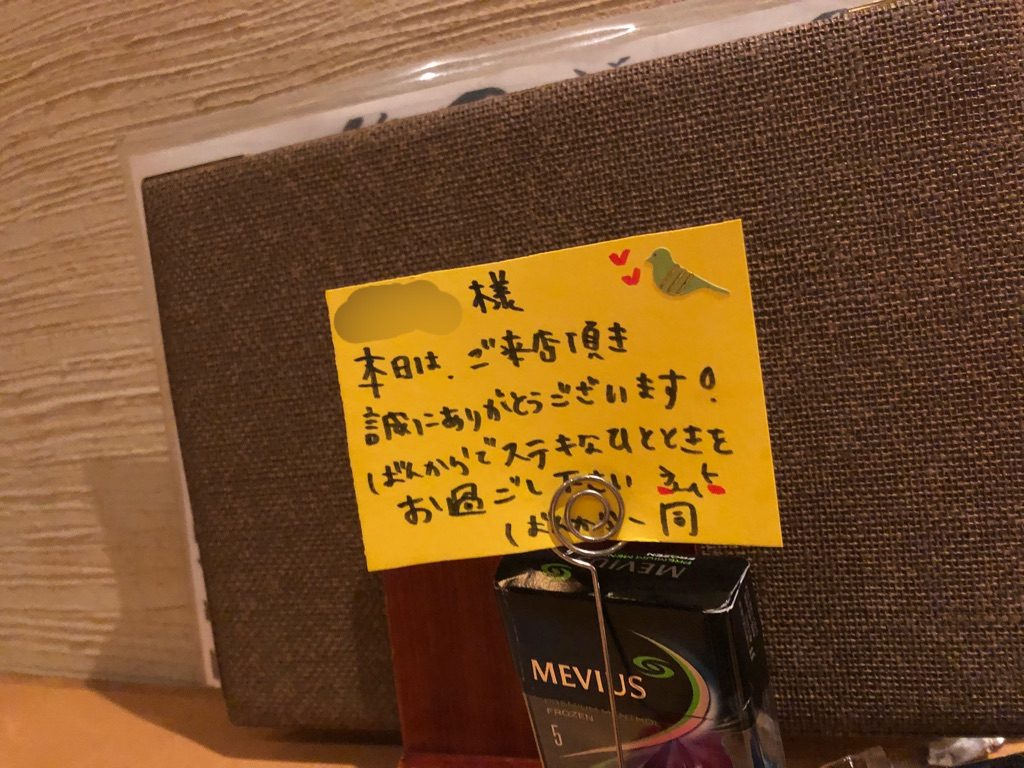 様
本日は、ご来店頂き
誠にありがとうございます!
ばんからでステキなひとときを
お過ごし下さい
ばんから一同
MEVIUS
PREMIUM MENTHOL
FROZEN
MEVIUS
PREMIUM MENTHOL
FROZEN
5